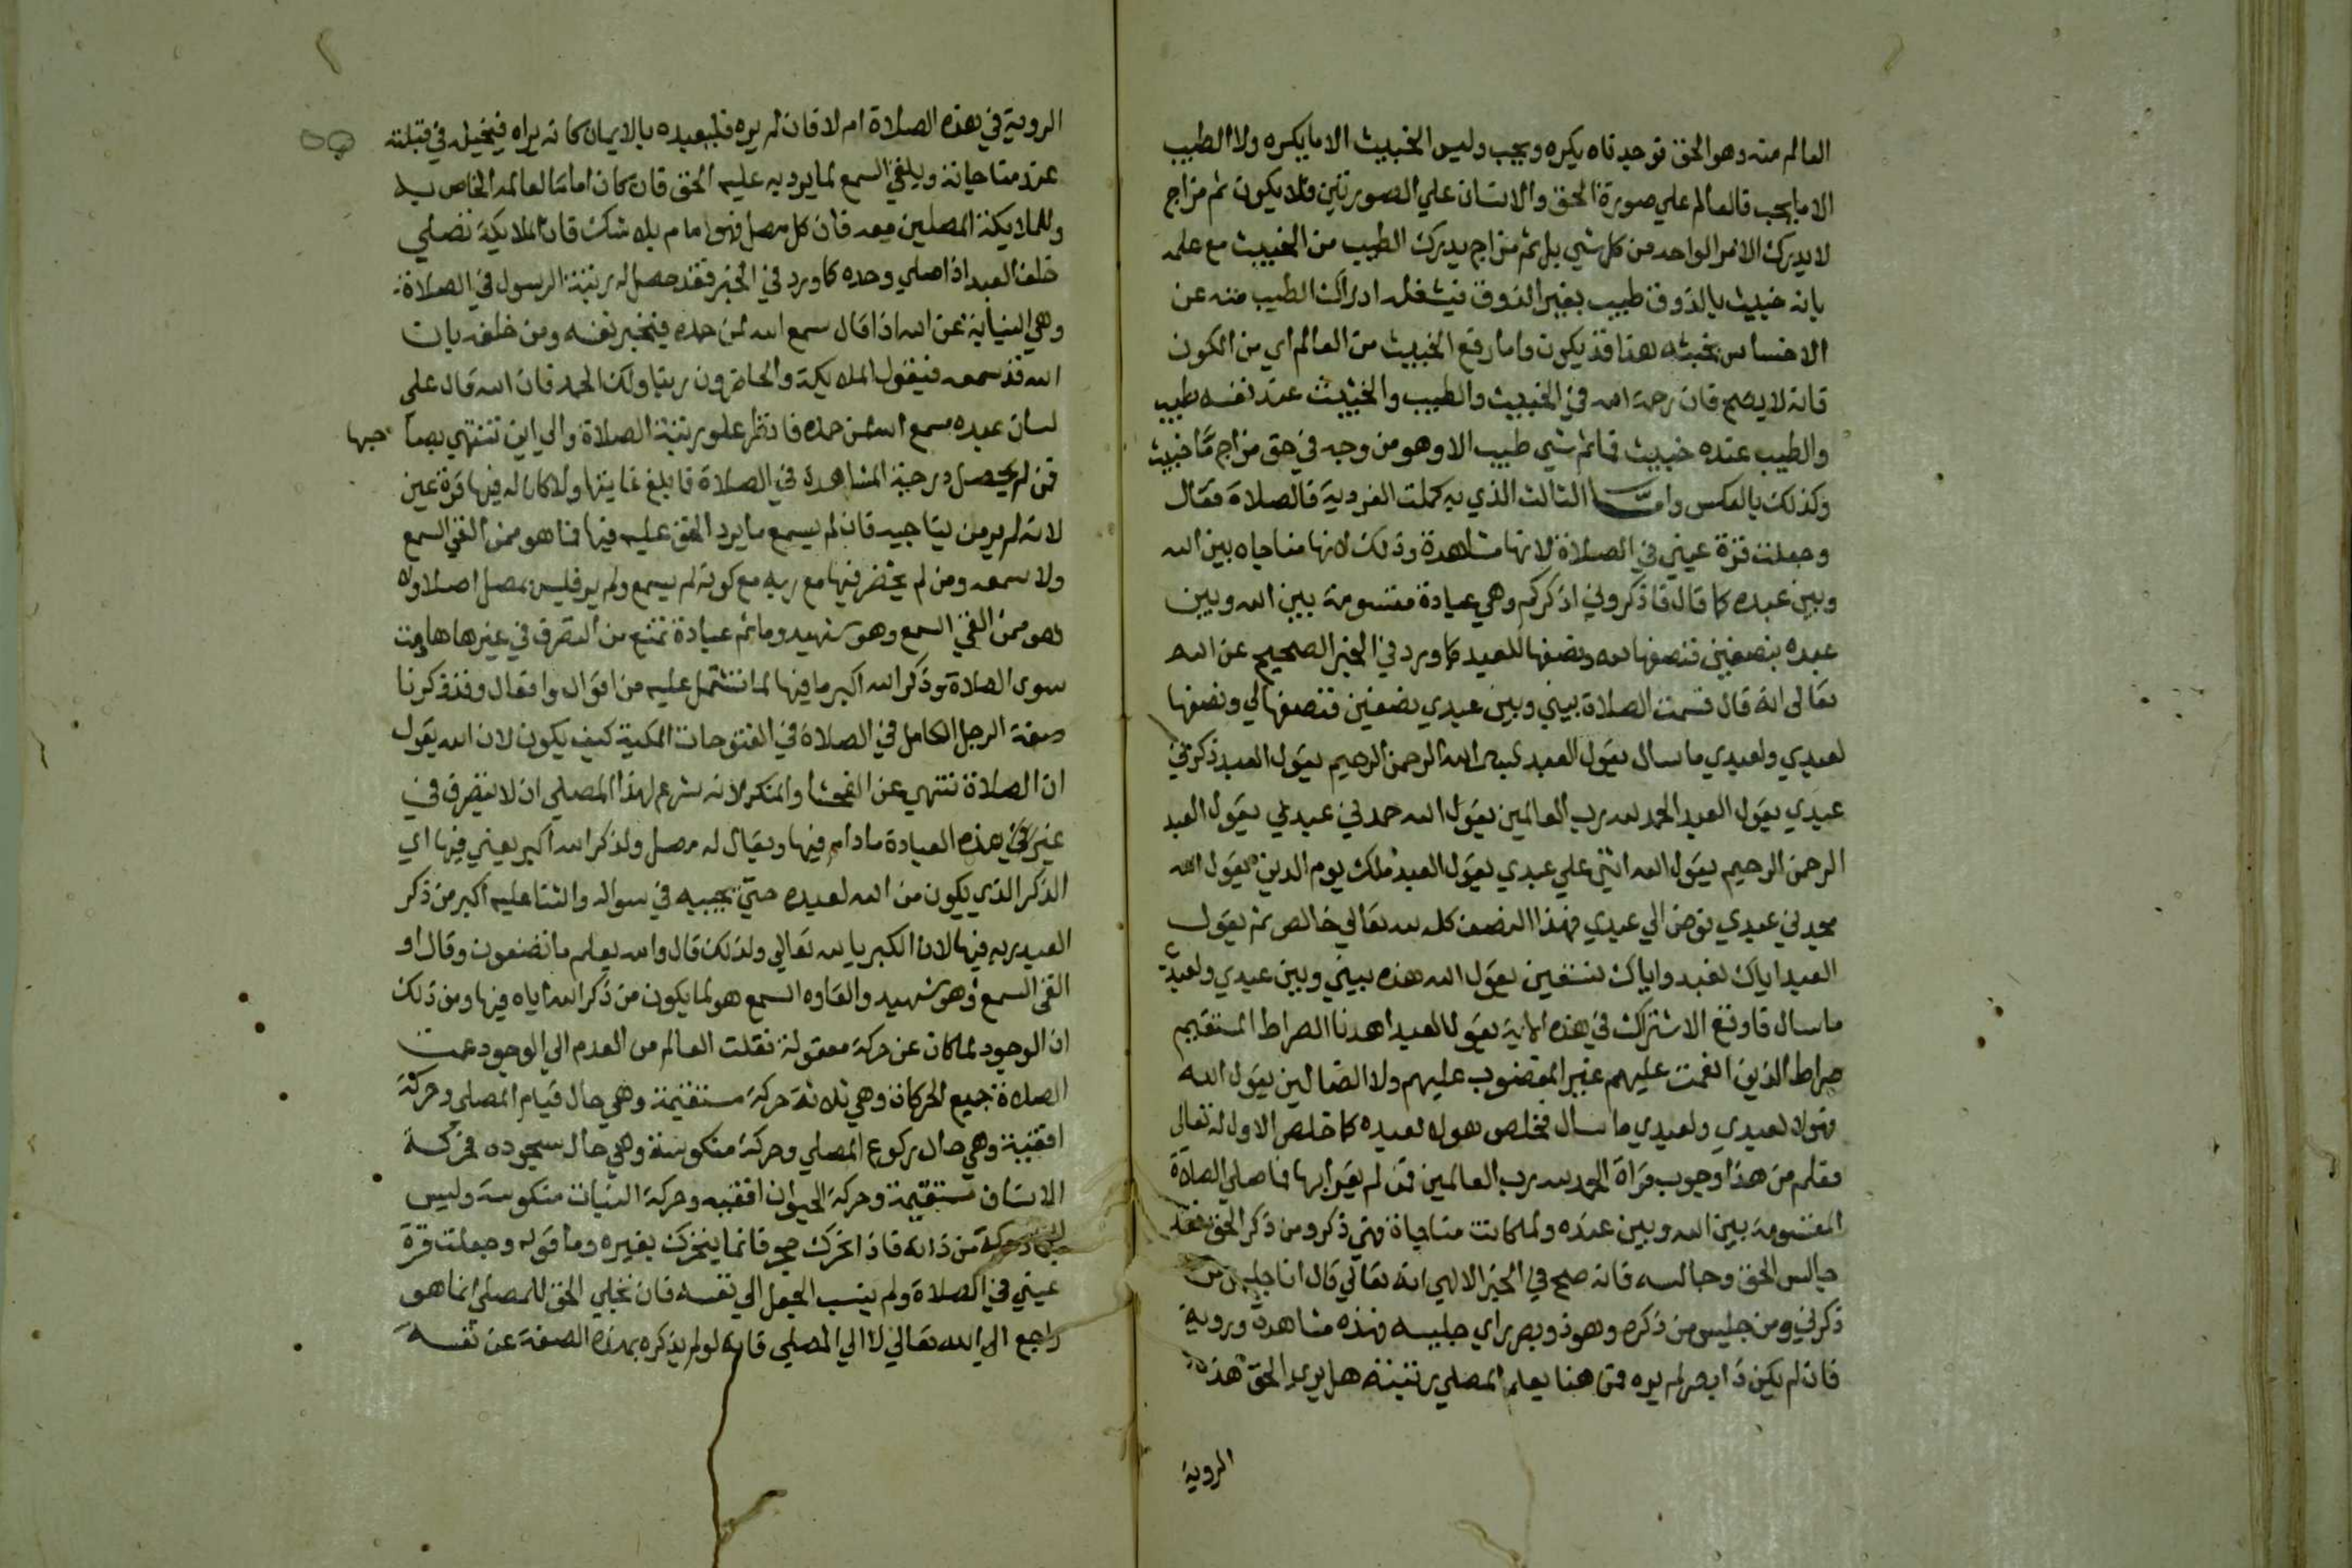 العالم منه وهو الحق فوجدناه يكره ويحب وليس الخبيث الا ما يكره ولا الطيب
الا ما يحب فالعالم علي صورة الحق والانسان علي الصورتين فلا يكون ثم مزاج
لا يدرك الا الامر الواحد من كل شي بل ثم مزاج يدرك الطيب من الخبيث مع علمه
بانه خبيث بالذوق طيب بغير الذوق فيشغله ادراك الطيب منه عن
الاحساس بخبثه هذا قد يكون واما رفع الخبيث من العالم اي من الكون
فانه لا يصح فان رحمة الله في الخبيث والطيب والخبيث عند نفسه طيب
والطيب عنده خبيث فما ثم شي طيب الا وهو من وجه في حق مزاج مّا خبيث
وكذلك بالعكس وامّا الثالث الذي به كملت الفردية فالصلاة فقال
وجعلت قرة عيني في الصلاة لانها مشاهدة وذلك لانها مناجاه بين الله
وبين عبده كما قال فاذكروني اذكركم وهي عبادة مقسومة بين الله وبين
عبده بنصفين فنصفها لله ونصفها للعبد كما ورد في الخبر الصحيح عن الله
تعالى انه قال قسمت الصلاة بيني وبين عبدي نصفين فنصفها لي ونصفها
لعبدي ولعبدي ما سال يقول العبد بسم الله الرحمن الرحيم يقول العبد ذكرني
عبدي يقول العبد الحمد لله رب العالمين يقول الله حمدني عبدي يقول العبد
الرحمن الرحيم يقول الله اثني علي عبدي يقول العبد ملك يوم الدين يقول الله
مجدني عبدي فوض الي عبدي فهذا النصف كله لله تعالي خالص ثم يقول
العبد اياك نعبد واياك نستعين يقول الله هذه بيني وبين عبدي ولعبدي
ما سال فاوقع الاشتراك في هذه الاية يقول العبد اهدنا الصراط المستقيم
صراط الذين انعمت عليهم غير المغضوب عليهم ولا الضالين يقول الله
فهولا لعبدي ولعبدي ما سال فخلص هولا لعبده كما خلص الاول له تعالى
فعلم من هذا وجوب قراة الحمد لله رب العالمين فمن لم يقرا بها فما صلي الصلاة
المقسومة بين الله وبين عبده ولما كانت مناجاة فهي ذكر ومن ذكر الحق فقد
جالس الحق وجالسه فانه صح في الخبر الالهي انه تعالي قال انا جليس من
ذكرني ومن جليس من ذكره وهو ذو بصر راي جليسه فهذه مشاهدة وروية
فان لم يكن ذا بصر لم يره فمن هنا يعلم المصلي رتبته هل يري الحق هذه
الروية
الروية في هذه الصلاة ام لا فان لم يره فليعبده بالايمان كانه يراه فيخيله في قبلته
عند مناجاته ويلقي السمع لما يرد به عليه الحق فان كان اماما لعالمه الخاص به
وللملايكة المصلين معه فان كل مصل فهو امام بلا شك فان الملايكة تصلي
خلف العبد اذا صلي وحده كما ورد في الخبر فقد حصل له رتبة الرسول في الصلاة
وهي النيابة عن الله اذا قال سمع الله لمن حمده فيخبر نفسه ومن خلفه بان
الله قد سمعه فيقول الملايكة والحاضرون ربنا ولك الحمد فان الله قال على
لسان عبده سمع الله لمن حمده فانظر علو رتبة الصلاة والي اين تنتهي بصاحبها
فمن لم يحصل درجة المشاهدة في الصلاة فما بلغ غايتها ولا كان له فيها قرة عين
لانه لم ير من يناجيه فان لم يسمع ما يرد الحق عليه فيها فما هو ممن القي السمع
ولا سمعه ومن لم يحضر فيها مع ربه مع كونه لم يسمع ولم ير فليس بمصل اصلا ولا
هو ممن القي السمع وهو شهيد وما ثم عبادة تمنع من التصرف في غيرها ما دامت
سوى الصلاة وذكر الله اكبر ما فيها لما تشتمل عليه من اقوال وافعال وقد ذكرنا
صفة الرجل الكامل في الصلاة في الفتوحات المكية كيف يكون لان الله يقول
ان الصلاة تنتهي عن الفحشا والمنكر لانه شرع لهذا المصلي ان لا يتصرف في
غير هذه العبادة ما دام فيها ويقال له مصل ولذكر الله اكبر يعني فيها اي
الذكر الذي يكون من الله لعبده حتي يجيبه في سواله والثنا عليه اكبر من ذكر
العبد ربه فيها لان الكبريا لله تعالي ولذلك قال والله يعلم ما تصنعون وقال او
القي السمع وهو شهيد والقاوه السمع هو لما يكون من ذكر الله اياه فيها ومن ذلك
ان الوجود لما كان عن حركة معقولة نقلت العالم من العدم الي الوجود عمت
الصلاة جميع الحركات وهي ثلاثة حركة مستقيمة وهي حال قيام المصلي وحركة
افقية وهي حال ركوع المصلي وحركة منكوسة وهي حال سجوده فحركة
الانسان مستقيمة وحركة الحيوان افقيه وحركة النبات منكوسة وليس
للجماد حركة من ذاته فاذا تحرك حجر فانما يتحرك بغيره وما قوله وجعلت قرة
عيني في الصلاة ولم ينسب الجعل الي نفسه فان تجلي الحق للمصلي انما هو
راجع الي الله تعالي لا الي المصلي فانه لو لم يذكره بهذه الصفة عن نفسه